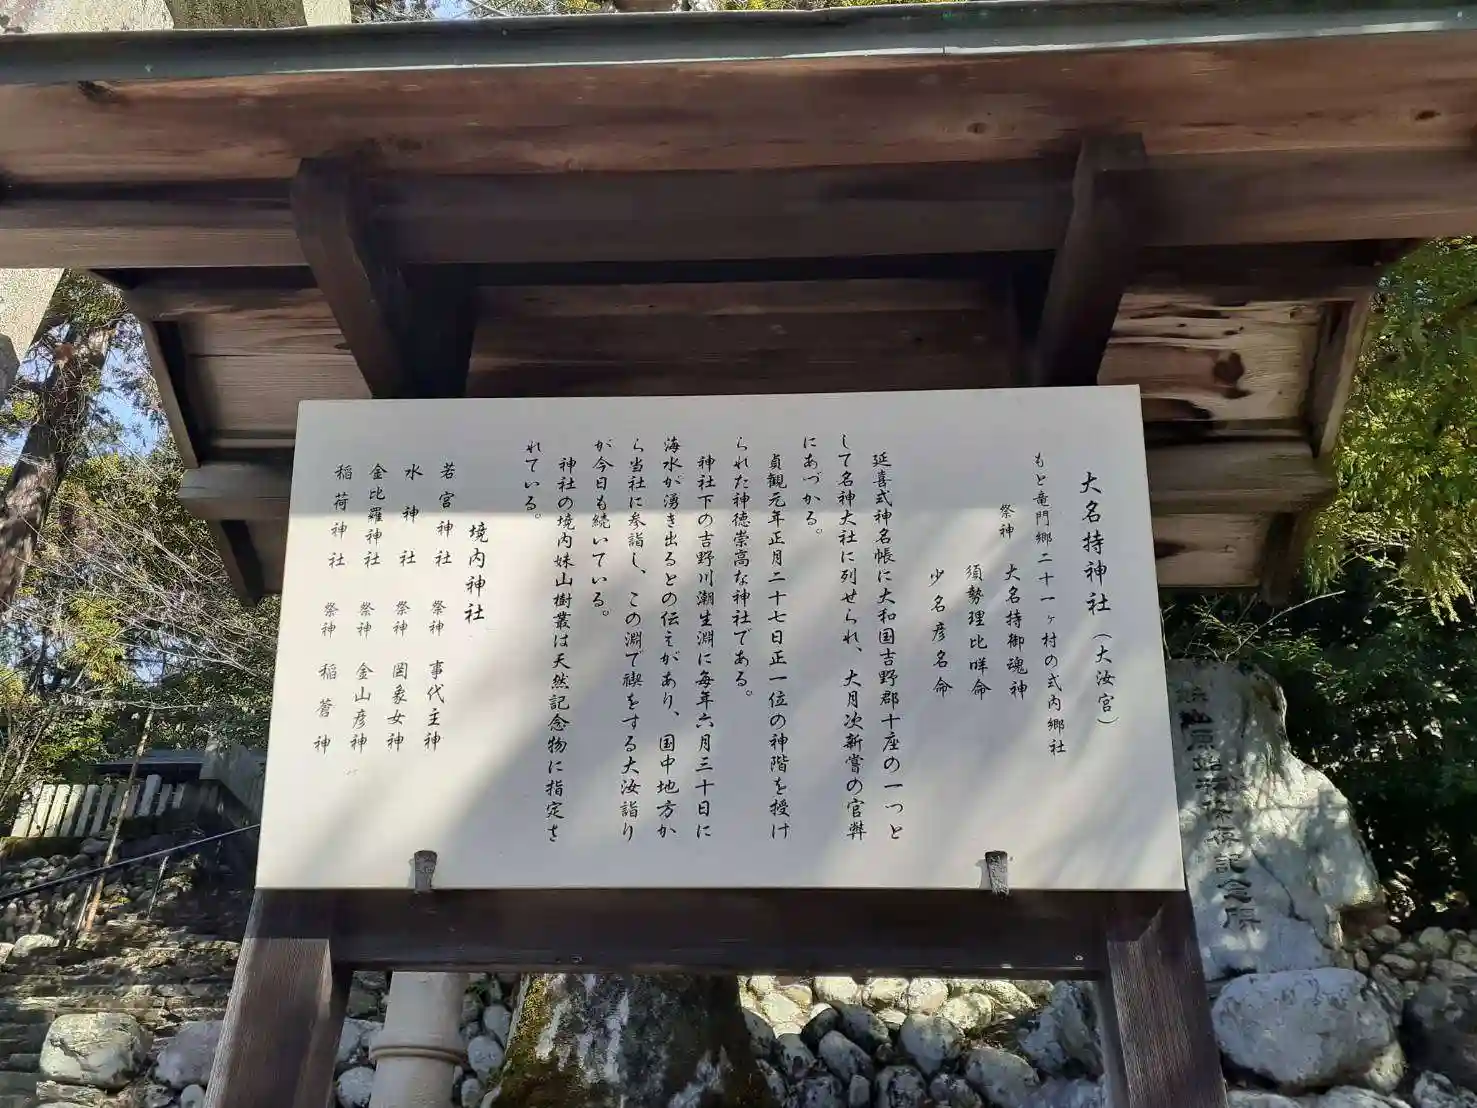 大名持神社（大汝宮）
もと竜門郷二十一ヶ村の式内郷社
祭神　大名持御魂神
須勢理比咩命
少名彦名命
延喜式神名帳に大和国吉野郡十座の一つと
して名神大社に列せられ、大月次新嘗の官幣
にあづかる。
貞観元年正月二十七日正一位の神階を授け
られた神徳崇高な神社である。
神社下の吉野川潮生淵に毎年六月三十日に
海水が湧き出るとの伝えがあり、国中地方か
ら当社に参詣し、この淵で禊をする大汝詣り
が今日も続いている。
神社の境内妹山樹叢は天然記念物に指定さ
れている。
境内神社
若宮神社　祭神　事代主神
水神社　祭神　罔象女神
金比羅神社　祭神　金山彦神
稲荷神社　祭神　稲蒼神
妹山原始林保存記念碑